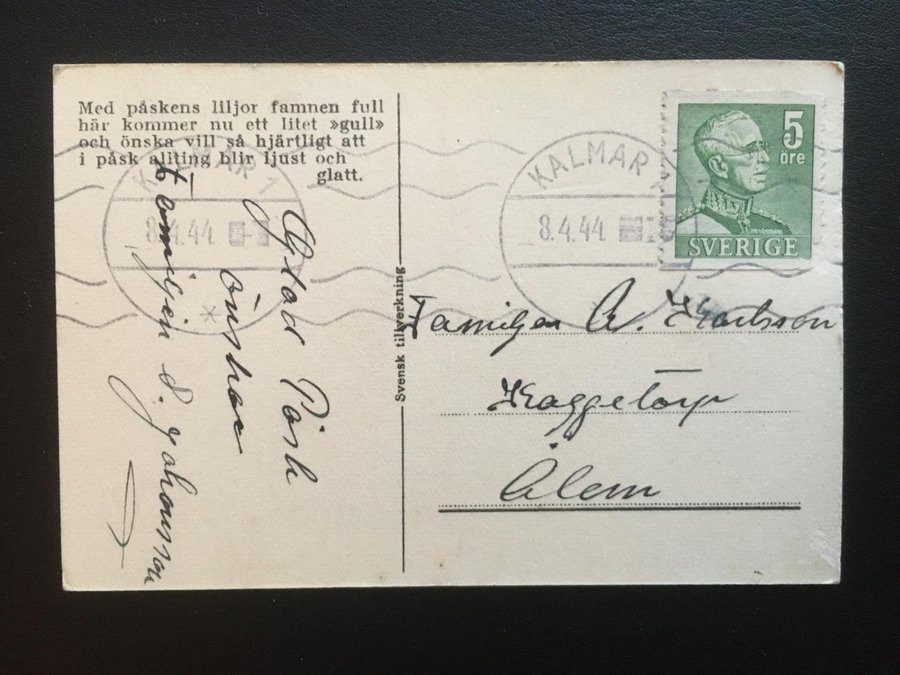 Med påskens liljor famnen full
här kommer nu ett litet »gull»
och önska vill så hjärtligt att
i påsk allting blir ljust och
glatt.
KALMAR 1
8.4.44
Glad Påsk
önskar
Familjen S. Johansson
Svensk tillverkning
KALMAR 1
8.4.44
5
öre
SVERIGE
Familjen A. Karlsson
Kaggetorp
Ålem